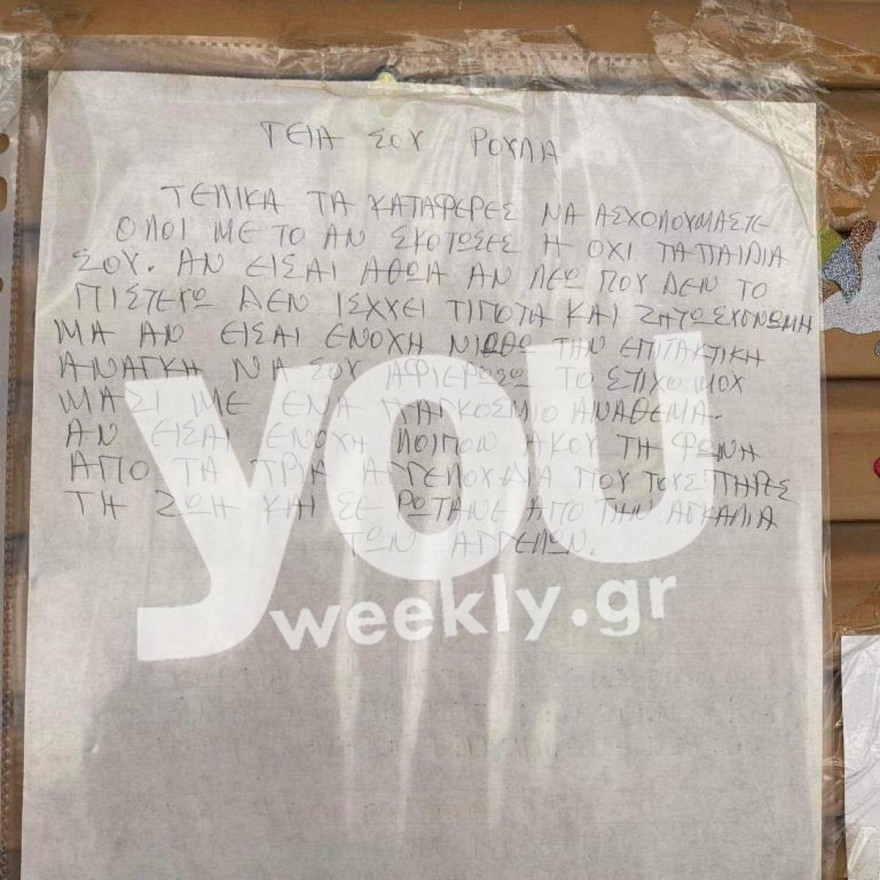 ΓΕΙΑ ΣΟΥ ΡΟΥΛΑ
ΤΕΛΙΚΑ ΤΑ ΚΑΤΑΦΕΡΕΣ ΝΑ ΑΣΧΟΛΟΥΜΑΣΤΕ
ΟΛΟΙ ΜΕ ΤΟ ΑΝ ΣΚΟΤΩΣΕΣ Η ΟΧΙ ΤΑ ΠΑΙΔΙΑ
ΣΟΥ. ΑΝ ΕΙΣΑΙ ΑΘΩΑ ΑΝ ΛΕΩ ΠΟΥ ΔΕΝ ΤΟ
ΠΙΣΤΕΥΩ ΔΕΝ ΙΣΧΥΕΙ ΤΙΠΟΤΑ ΚΑΙ ΖΗΤΩ ΣΥΓΝΩΜΗ
ΜΑ ΑΝ ΕΙΣΑΙ ΕΝΟΧΗ ΝΙΩΘΩ ΤΗΝ ΕΠΙΤΑΚΤΙΚΗ
ΑΝΑΓΚΗ ΝΑ ΣΟΥ ΑΦΙΕΡΩΣΩ ΤΟ ΣΤΙΧΟ ΜΟΥ
ΜΑΖΙ ΜΕ ΕΝΑ ΠΑΓΚΟΣΜΙΟ ΑΝΑΘΕΜΑ.
ΑΝ ΕΙΣΑΙ ΕΝΟΧΗ ΛΟΙΠΟΝ ΑΚΟΥ ΤΗ ΦΩΝΗ
ΑΠΟ ΤΑ ΤΡΙΑ ΑΓΓΕΛΟΥΔΙΑ ΠΟΥ ΤΟΥΣ ΠΗΡΕΣ
ΤΗ ΖΩΗ ΚΑΙ ΣΕ ΡΩΤΑΝΕ ΑΠΟ ΤΗΝ ΑΓΚΑΛΙΑ
ΤΩΝ ΑΓΓΕΛΩΝ.
you
weekly.gr